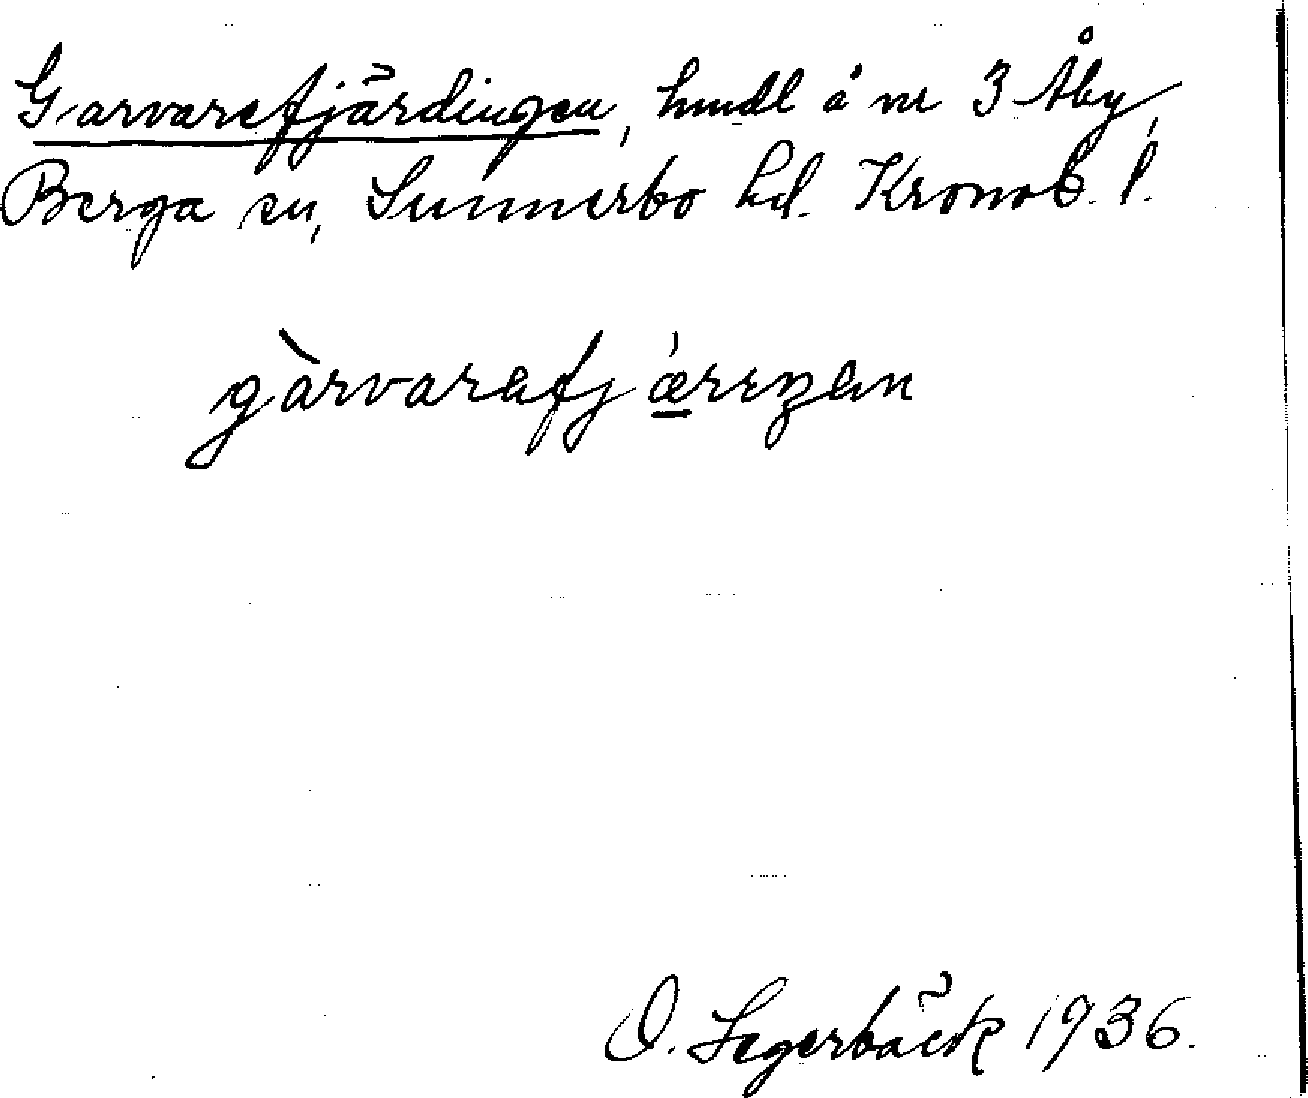 Garvarefjärdingen, hmdl å nr 3 Åby,
Berga sn, Sunnerbo hd. Kronob. l.
gàrvarefjǽrıŋen
O. Segerbäck 1936.